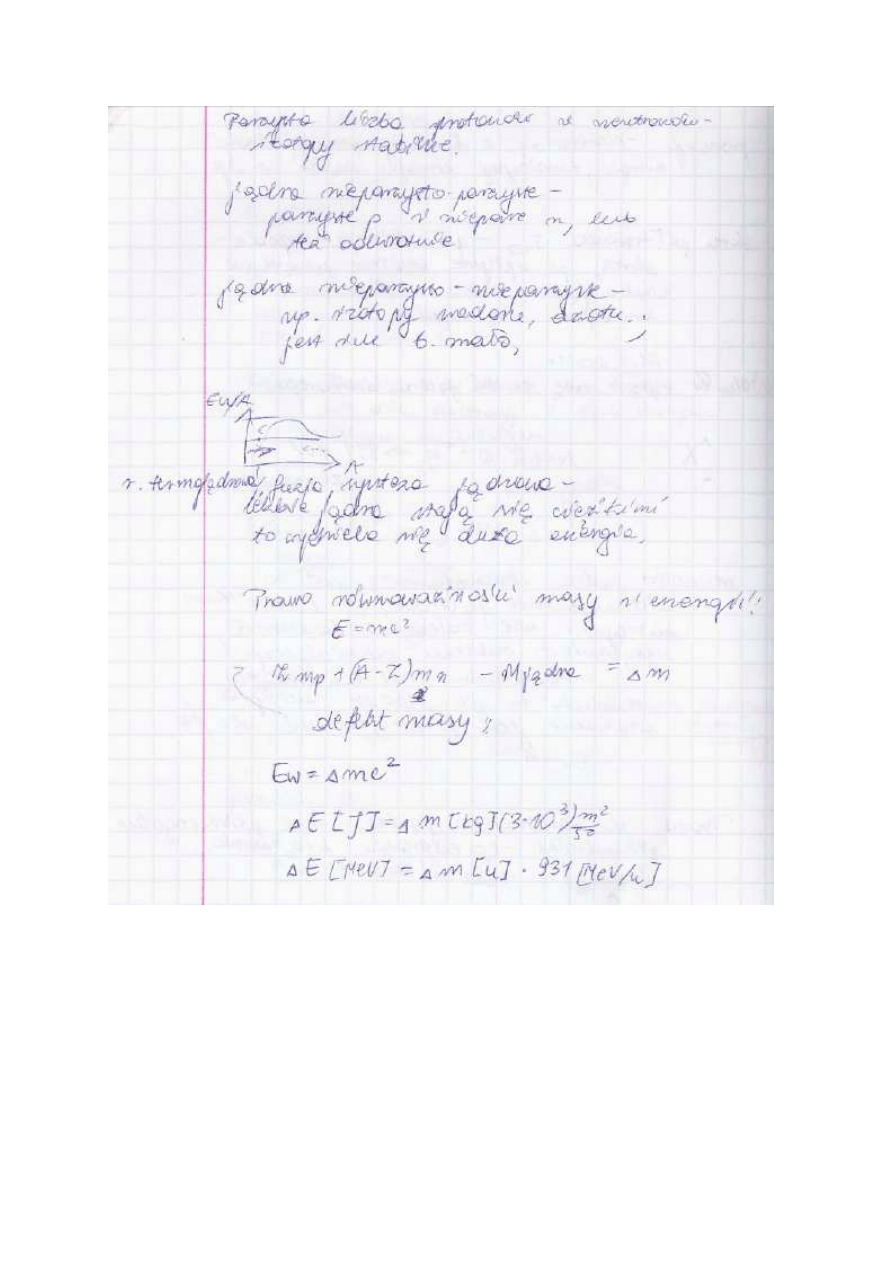 Parzysta liczba protonów i neutronów -
izotopy stabilne.
jądra nieparzysto-parzyste -
parzyste p i niepарzyste n, lub
też odwrotnie
jądra nieparzysto - nieparzyste -
np. izotopy wodoru, azotu..;
jest ich b. mało,
Ew/A
A
r. termojądrowa, fuzja, synteza jądrowa -
lekkie jądra stają się ciężkimi
to wydziela się duża energia.
Prawo równoważności masy i energii:
E=mc²
Z mp + (A-Z)mn - Mjądra = Δm
defekt masy
Ew = Δmc²
ΔE[J] = Δm[kg](3·10³) m²/s²
ΔE[MeV] = Δm[u] · 931 [MeV/u]